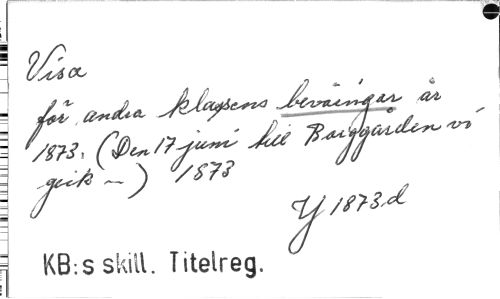 Visa
för andra klassens beväringar år
1873. (Den 17 juni till Borggården vi
gick —) 1873
Y 1873.d
KB:s skill. Titelreg.